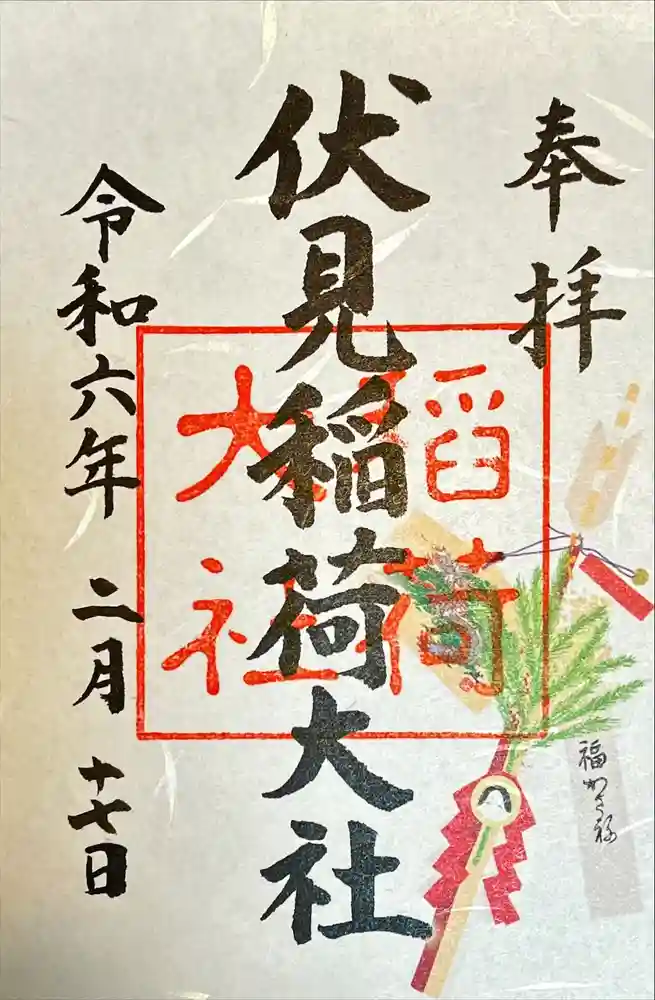 奉拝
伏見稲荷大社
稲荷
大社
令和六年 二月 十七日
福かさね